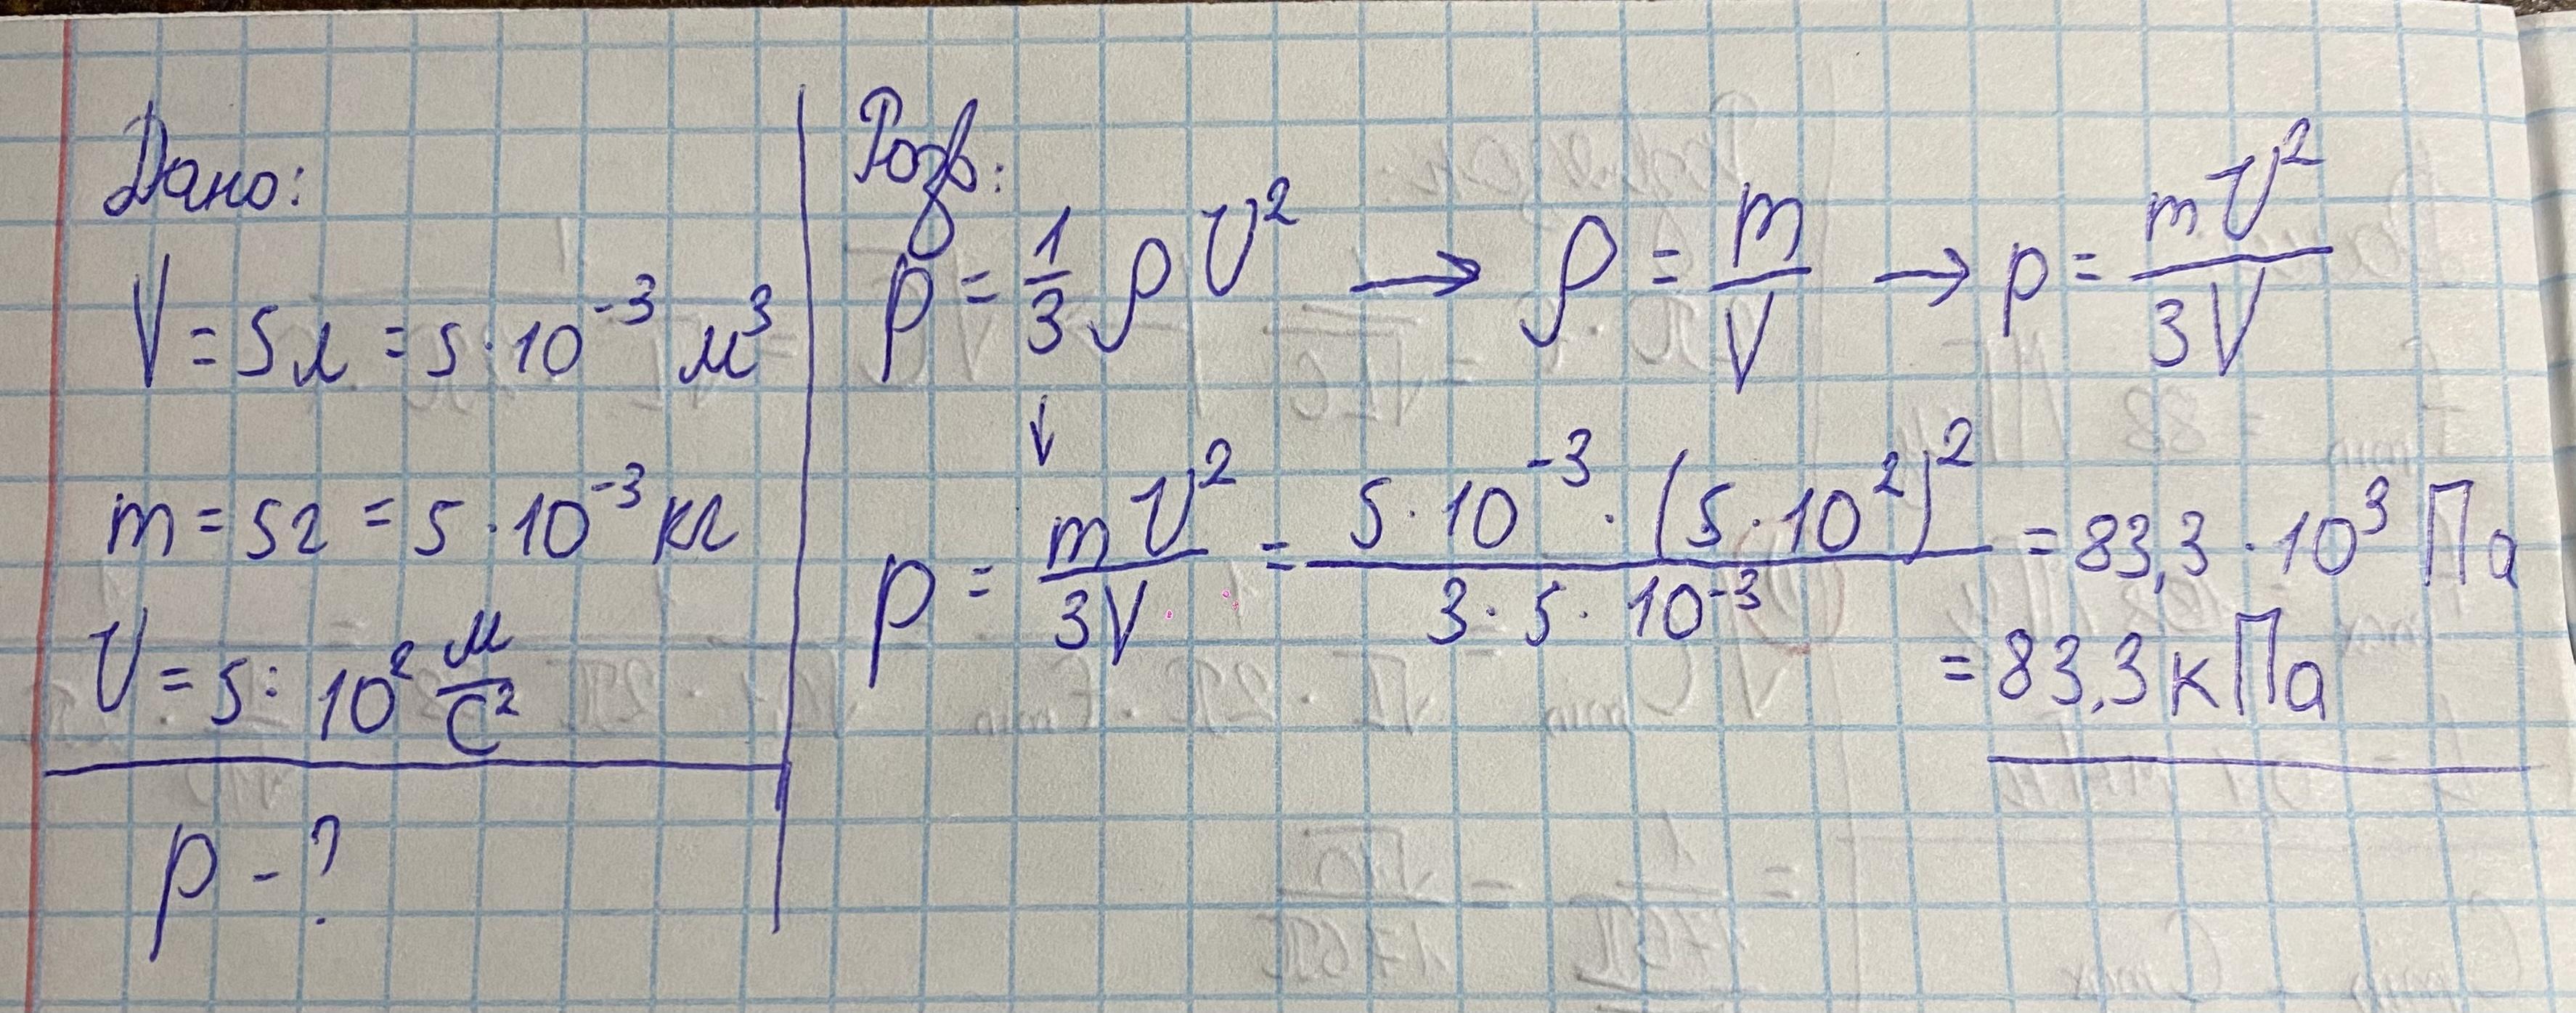 Дано:
V = 5 л = 5 · 10⁻³ м³
m = 5 г = 5 · 10⁻³ кг
v = 5 · 10² м/с²
p - ?
Розв:
p = 1/3 ρ v² → ρ = m/V → p = mv²/3V
↓
p = mv²/3V = 5 · 10⁻³ · (5 · 10²)²/3 · 5 · 10⁻³ = 83,3 · 10³ Па
= 83,3 кПа